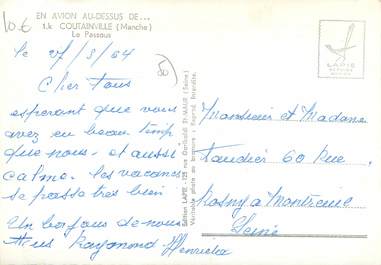 10 €
EN AVION AU-DESSUS DE...
1.k COUTAINVILLE (Manche)
Le Passous
le 27/8/64
50
Cher Tous
esperant que vous
avez eu beau timp
que nous - et aussi
calme. les vacances
se passe très bien
Un bonjour de nous
tous Raymond Henriette
Edition LAPIE, 728 rue Garibaldi ST-MAUR (Seine)
Véritable photo au bromure - Reprod. Interdite.
LAPIE
Monsieur et Madame
Taudier 60 Rue
Rosny a Montreuil
Seine